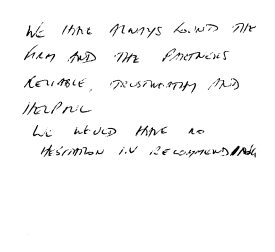 WE HAVE ALWAYS FOUND THE
FIRM AND THE PARTNERS
RELIABLE, TRUSTWORTHY AND
HELPFUL
WE WOULD HAVE NO
HESITATION IN RECOMMENDING